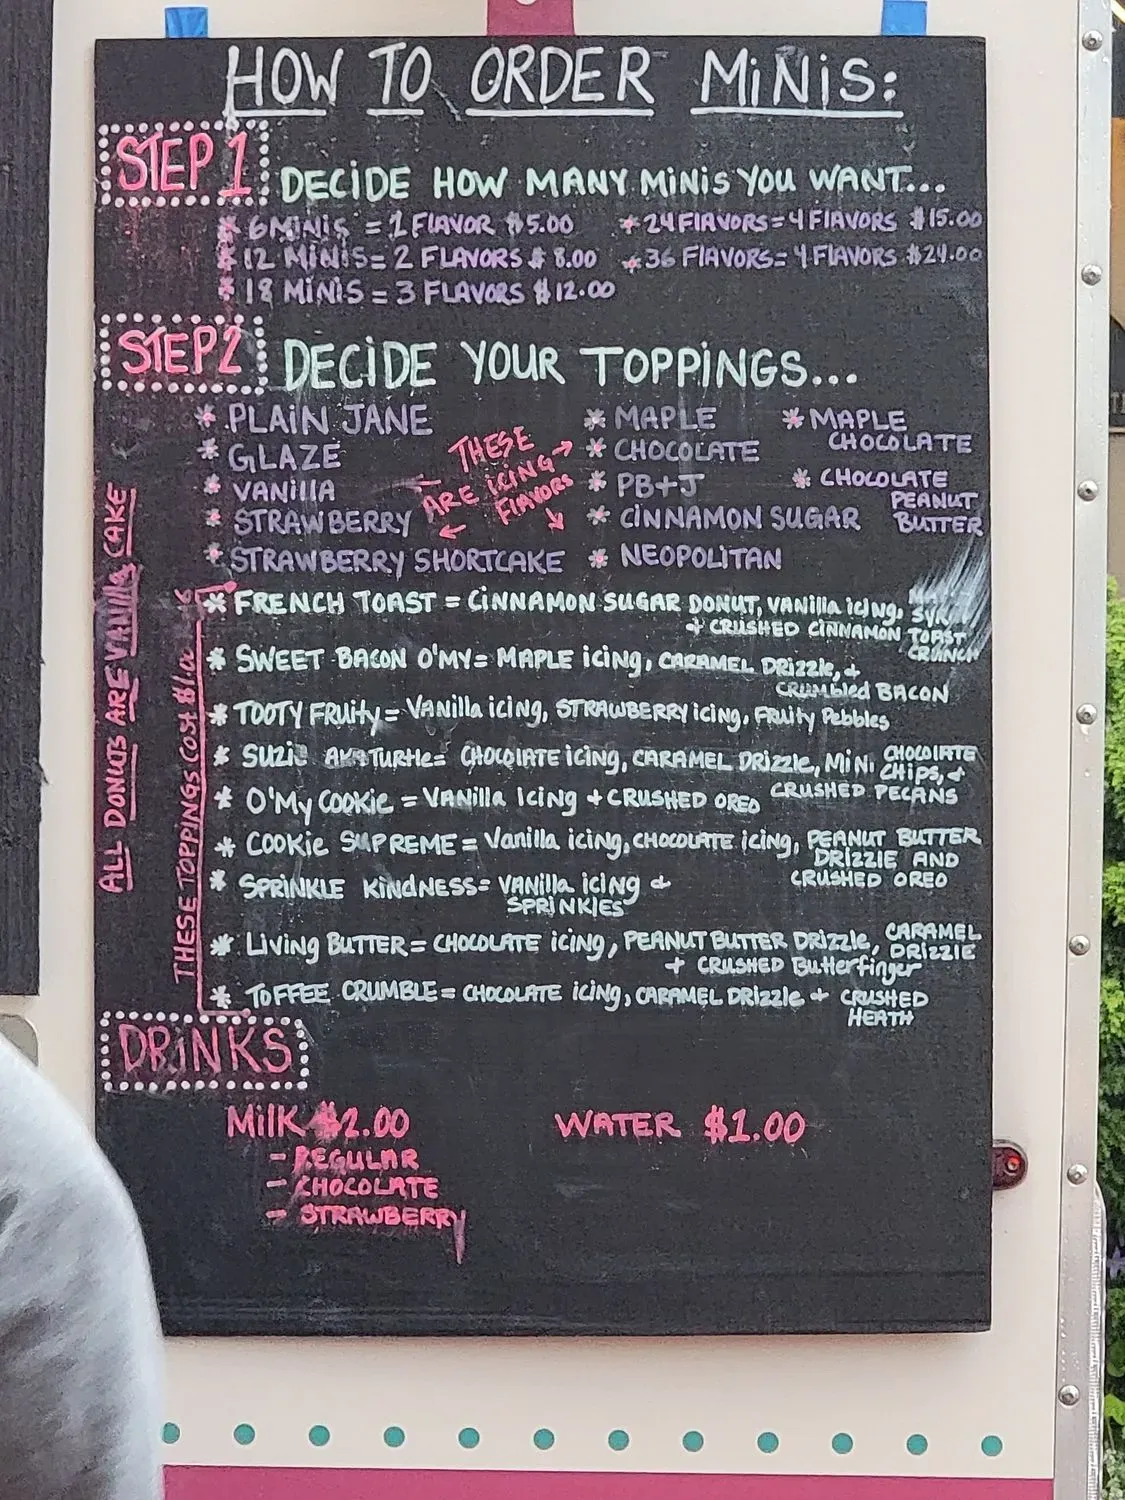 HOW TO ORDER MiNiS:
STEP 1
DECiDE HOW MANY MiNiS YOU WANT...
* 6 MiNiS = 1 FLAVOR $5.00
* 12 MiNiS = 2 FLAVORS $8.00
* 18 MiNiS = 3 FLAVORS $12.00
* 24 FLAVORS = 4 FLAVORS $15.00
* 36 FLAVORS = 4 FLAVORS $24.00
STEP 2
DECiDE YOUR TOPPiNGS...
* PLAiN JANE
* GLAZE
* VANillA
* STRAWBERRY
* STRAWBERRY SHORTCAKE
THESE
ARE iCiNG
FLAVORS
* MAPLE
* CHOCOLATE
* PB+J
* CiNNAMON SUGAR
* NEOPOLiTAN
* MAPLE
CHOCOLATE
* CHOCOLATE
PEANUT
BUTTER
ALL DONUTS ARE VANillA CAKE
THESE TOPPiNGS COST
* FRENCH TOAST = CiNNAMON SUGAR DONUT, VANillA iciNg,
+ CRUSHED CiNNAMON TOAST
CRUNCH
* SWEET BACON O'MY = MAPLE iciNg, CARAMEL DRizzle, +
CRUMbled BACON
* TOOTY FRuity = VANillA iciNg, STRAWBERRY iciNg, FRuity Pebbles
* SUZiE AKA TURtle = CHOCOlATE iciNg, CARAMEL DRizzle, MiNi CHOCOlATE
CHiPS, +
CRUSHED PECANS
* O'My COOKiE = VANillA IciNg + CRUSHED OREO
* COOKiE SUPREME = VANillA iciNg, CHOCOLATE iciNg, PEANUT BUTTER
DRIZZLE AND
CRUSHED OREO
* SPRiNKLE KiNDNESS = VANillA iciNg +
SPRiNKlES
* LiviNg BUTTER = CHOCOLATE iciNg, PEANUT BUTTER DRizzle, CARAMEL
DRiZZLE
+ CRUSHED Butterfinger
* TOFFEE CRUMBLE = CHOCOLATE iciNg, CARAMEL DRizzle + CRUSHED
HEATH
DRiNKS
MilK $2.00
- REGULAR
- CHOCOLATE
- STRAWBERRY
WATER $1.00